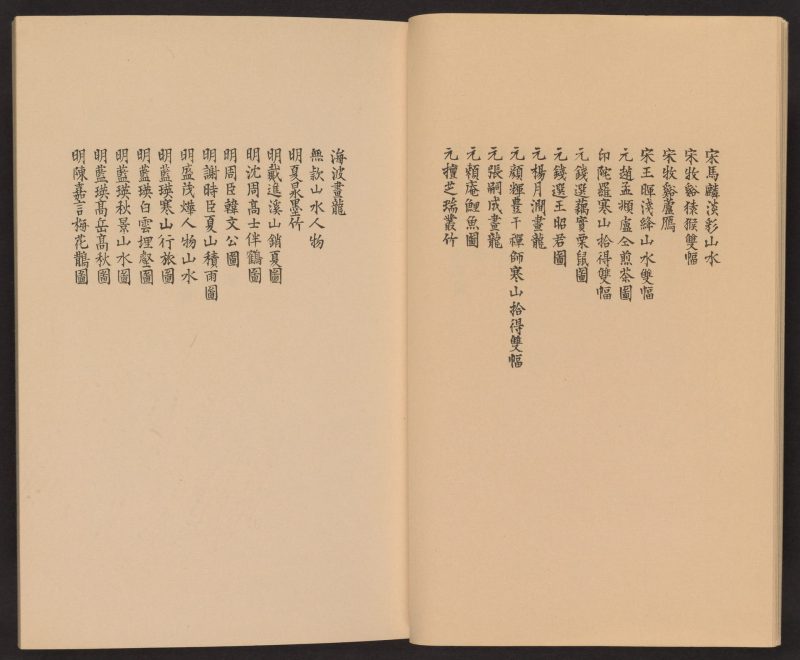 宋馬麟淡彩山水
宋牧谿猿猴雙幅
宋牧谿蘆鴈
宋王暉淺絳山水雙幅
元趙孟頫盧仝煎茶圖
印陀羅寒山拾得雙幅
元錢選藕實栗鼠圖
元錢選王昭君圖
元楊月澗畫龍
元顏輝豊干禪師寒山拾得雙幅
元張嗣成畫龍
元賴庵鯉魚圖
元檀芝瑞叢竹
海波畫龍
無款山水人物
明夏㫤墨竹
明戴進溪山銷夏圖
明沈周高士伴鶴圖
明周臣韓文公圖
明謝時臣夏山積雨圖
明盛茂燁人物山水
明藍瑛寒山行旅圖
明藍瑛白雲埋壑圖
明藍瑛秋景山水圖
明藍瑛高岳高秋圖
明陳嘉言梅花鵲圖